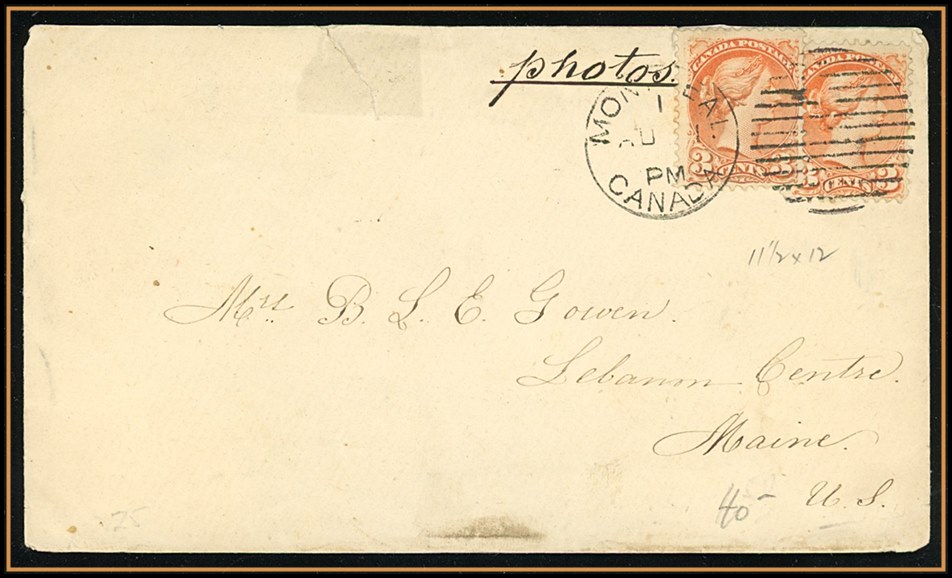 photos.
CANADA POSTAGE
CANADA POSTAGE
MONTREAL
1
AU
PM
CANADA
3 CENTS 3
3 CENTS 3
11 1/2 x 12
Mrs. B. L. E. Gowen.
Lebanon Centre.
Maine.
U. S.
40-
75